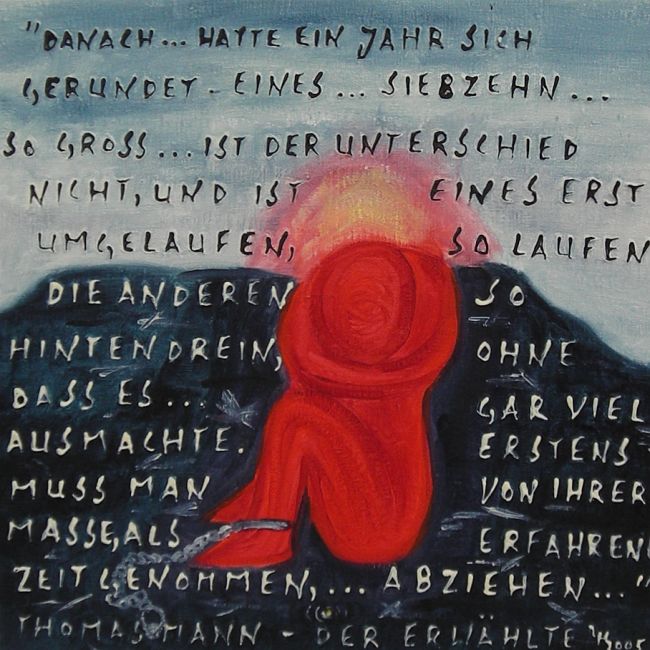 "DANACH... HATTE EIN JAHR SICH
GERUNDET. EINES... SIEBZEHN...
SO GROSS... IST DER UNTERSCHIED
NICHT, UND IST EINES ERST
UMGELAUFEN, SO LAUFEN
DIE ANDEREN SO
HINTENDREIN, OHNE
DASS ES... GAR VIEL
AUSMACHTE. ERSTENS
MUSS MAN VON IHRER
MASSE, ALS ERFAHREN
ZEIT GENOMMEN, ... ABZIEHEN..."
THOMAS MANN - DER ERWÄHLTE